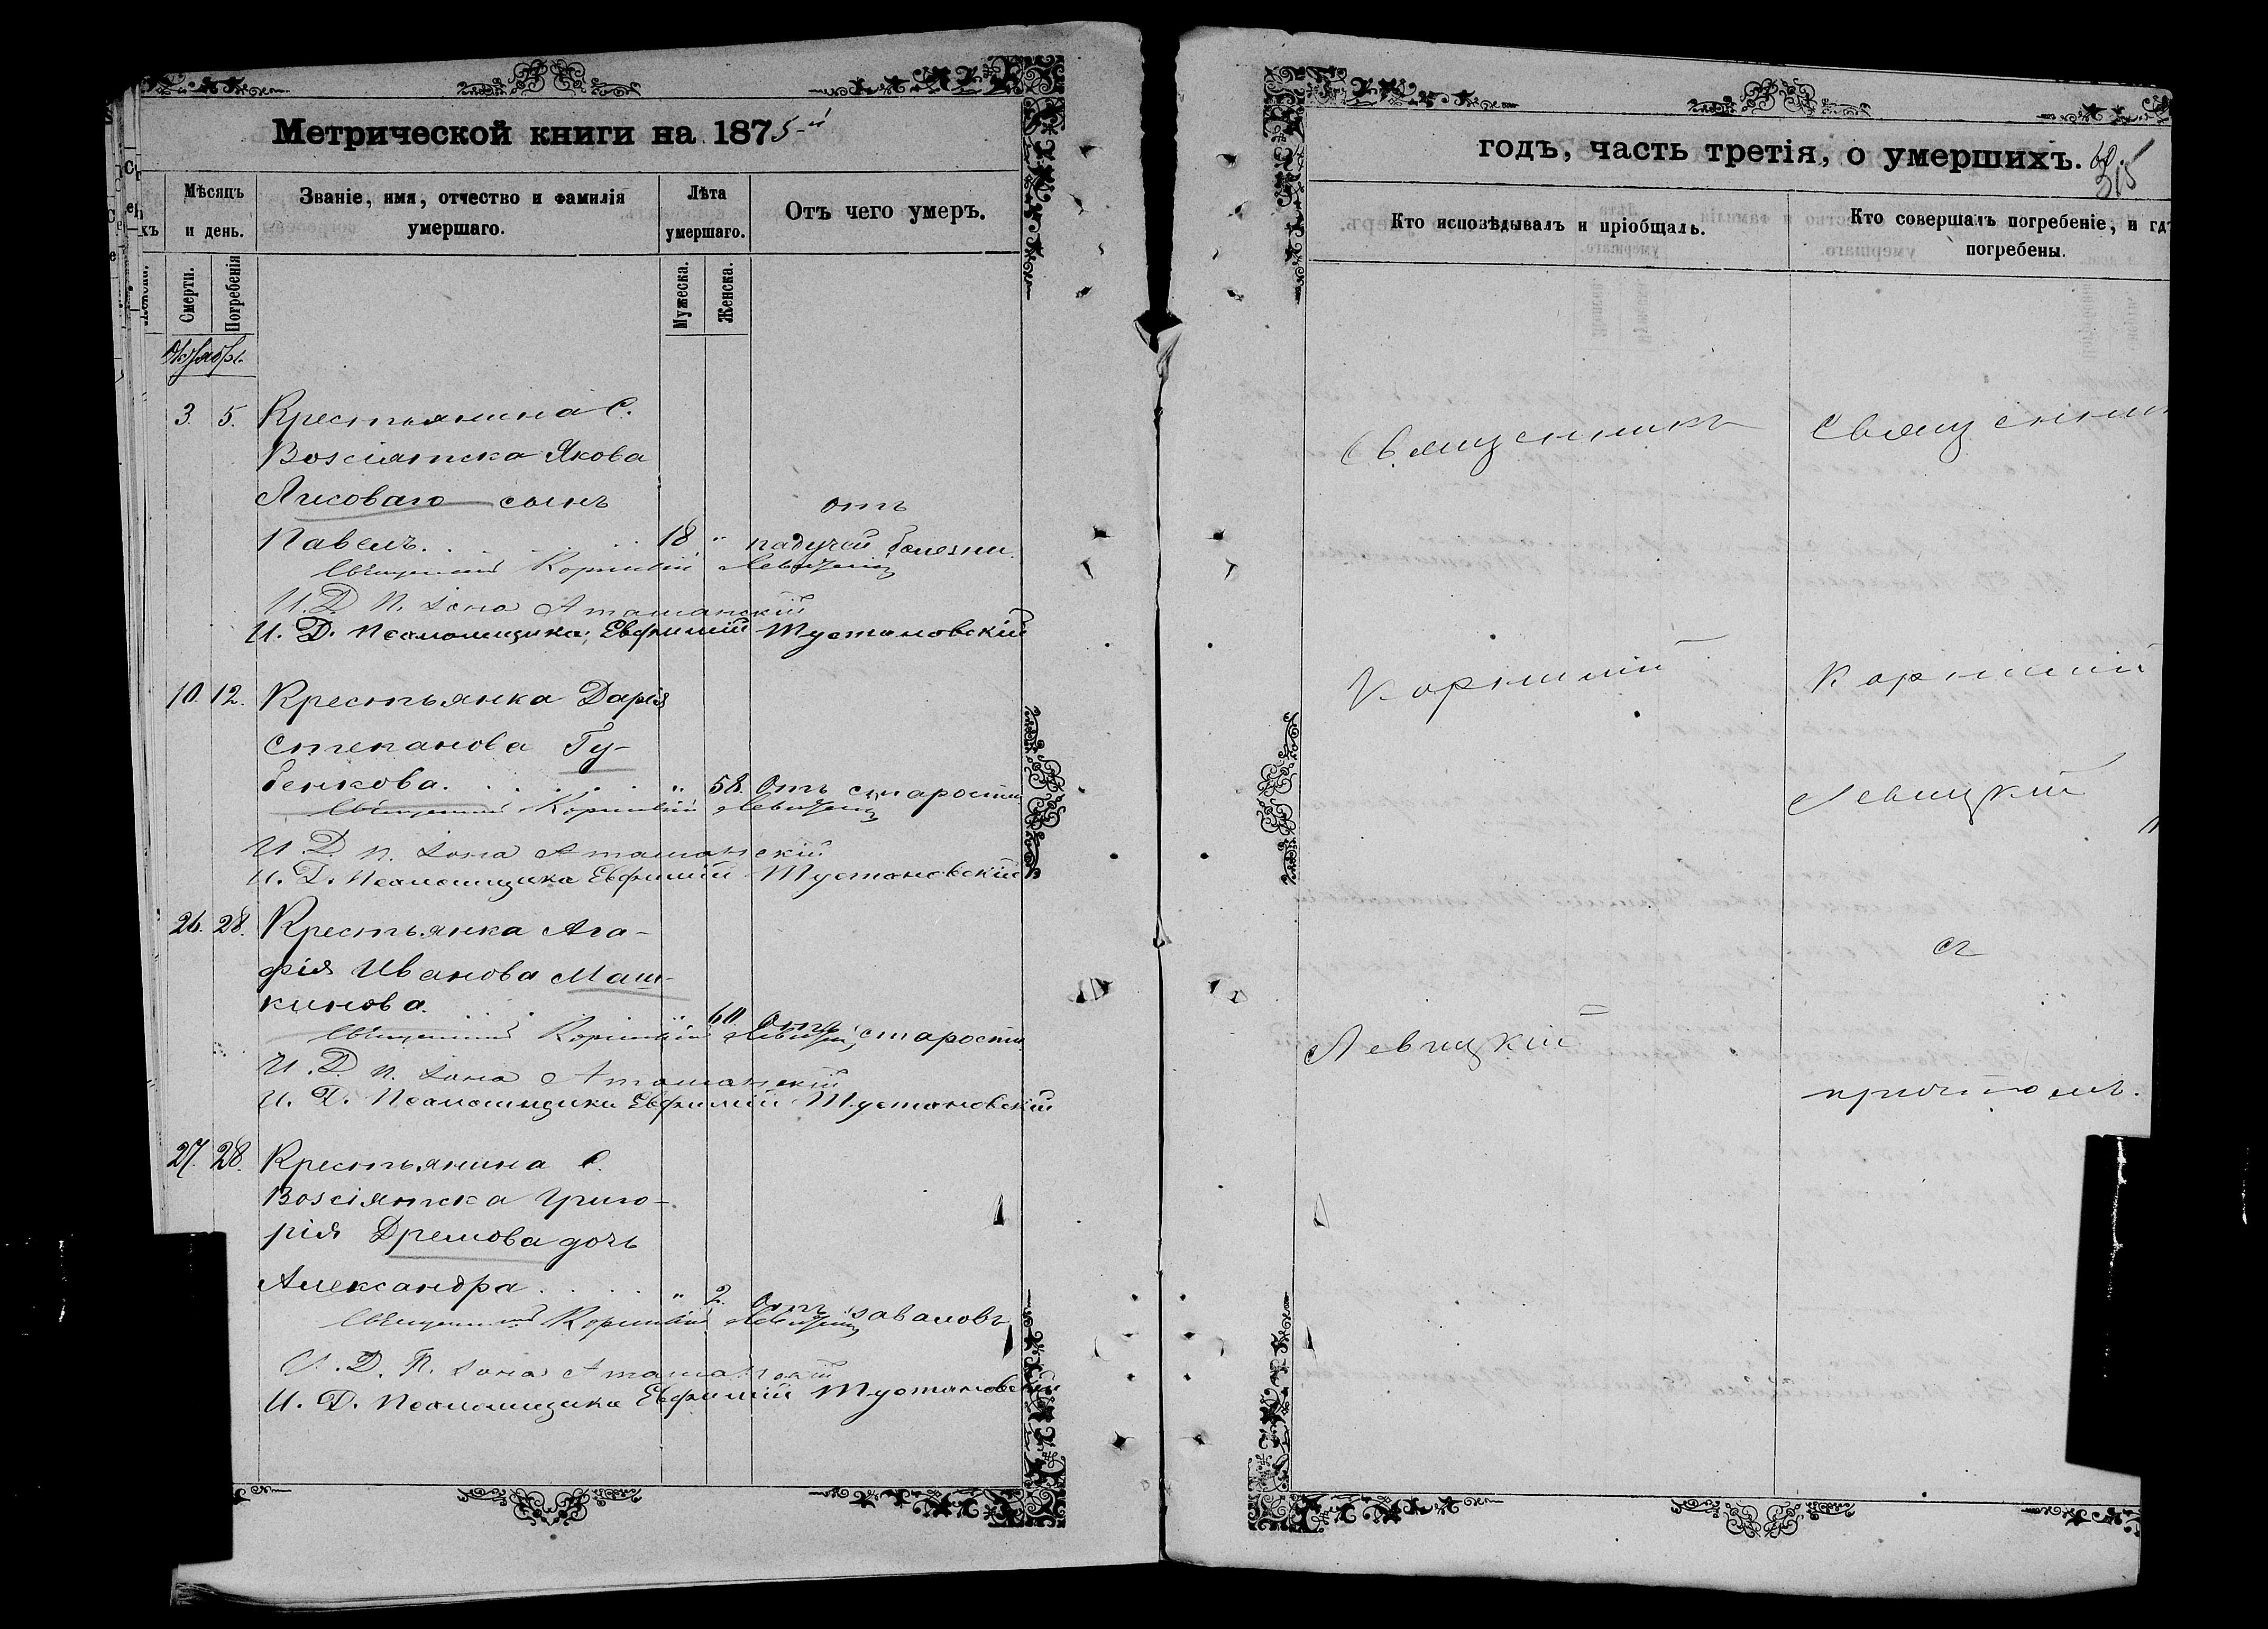 Метрической книги на 1875-й
Мѣсяцъ и день.
Званіе, имя, отчество и фамилія умершаго.
Лѣта умершаго.
Отъ чего умеръ.
Смерти.
Погребенія
Мужеска.
Женска.
Октябрь
3. 5. Крестьянина С.
Возсіятска Якова
Лисоваго сынъ
отъ
Павелъ. 18 " падучей болезни.
Священникъ Корнилій Левицкій
И. Д. П. Іона Аташанскій
И. Д. Псаломщика Евфимій Тустановскій
10. 12. Крестьянка Дарія
Степанова Гу-
бенкова. " 58. Отъ старости
Священникъ Корнилій Левицкій
И. Д. П. Іона Аташанскій
И. Д. Псаломщика Евфимій Тустановскій
26. 28. Крестьянка Ага-
фія Иванова Маш-
кинова. " 60. Отъ старости
Священникъ Корнилій Левицкій
И. Д. П. Іона Аташанскій
И. Д. Псаломщика Евфимій Тустановскій
27. 28. Крестьянина С.
Возсіятска Григо-
рія Дремова дочь
Александра. " 2. Отъ заваловъ
Священникъ Корнилій Левицкій
И. Д. П. Іона Аташанскій
И. Д. Псаломщика Евфимій Тустановскій
годъ, часть третія, о умершихъ.
315
Кто исповѣдывалъ и пріобщалъ.
Кто совершалъ погребеніе, и гдѣ
погребены.
Священникъ
Корнилій
Левицкій
Священник
Корнилій
Левицкій
съ
причтомъ.